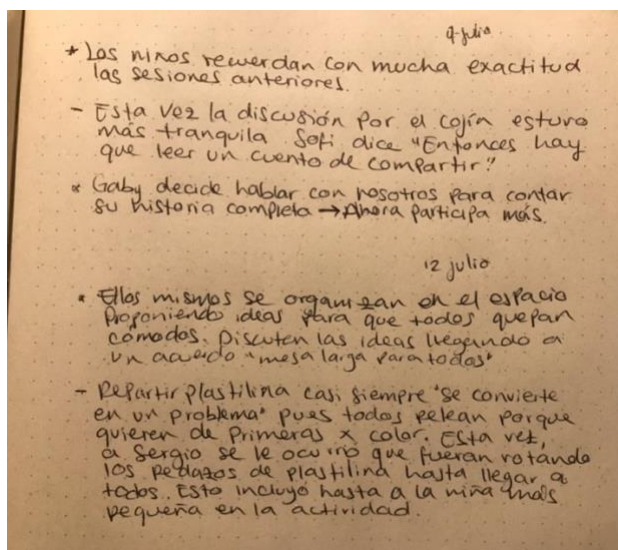 9-julio
* Los niños recuerdan con mucha exactitud
las sesiones anteriores.
- Esta vez la discusión por el cojín estuvo
más tranquila Sofi dice "Entonces hay
que leer un cuento de compartir?"
* Gaby decide hablar con nosotros para contar
su historia completa → Ahora participa más.
12 julio
* Ellos mismos se organizan en el espacio
Proponiendo ideas para que todos quepan
cómodos. Discuten las ideas llegando a
un acuerdo "mesa larga para todos"
- Repartir plastilina casi siempre "se convierte
en un problema" pues todos pelean porque
quieren de primeras x color. Esta vez,
a Sergio se le ocurrio que fueran rotando
los pedazos de plastilina hasta llegar a
todos. Esto incluyó hasta a la niña más
pequeña en la actividad.